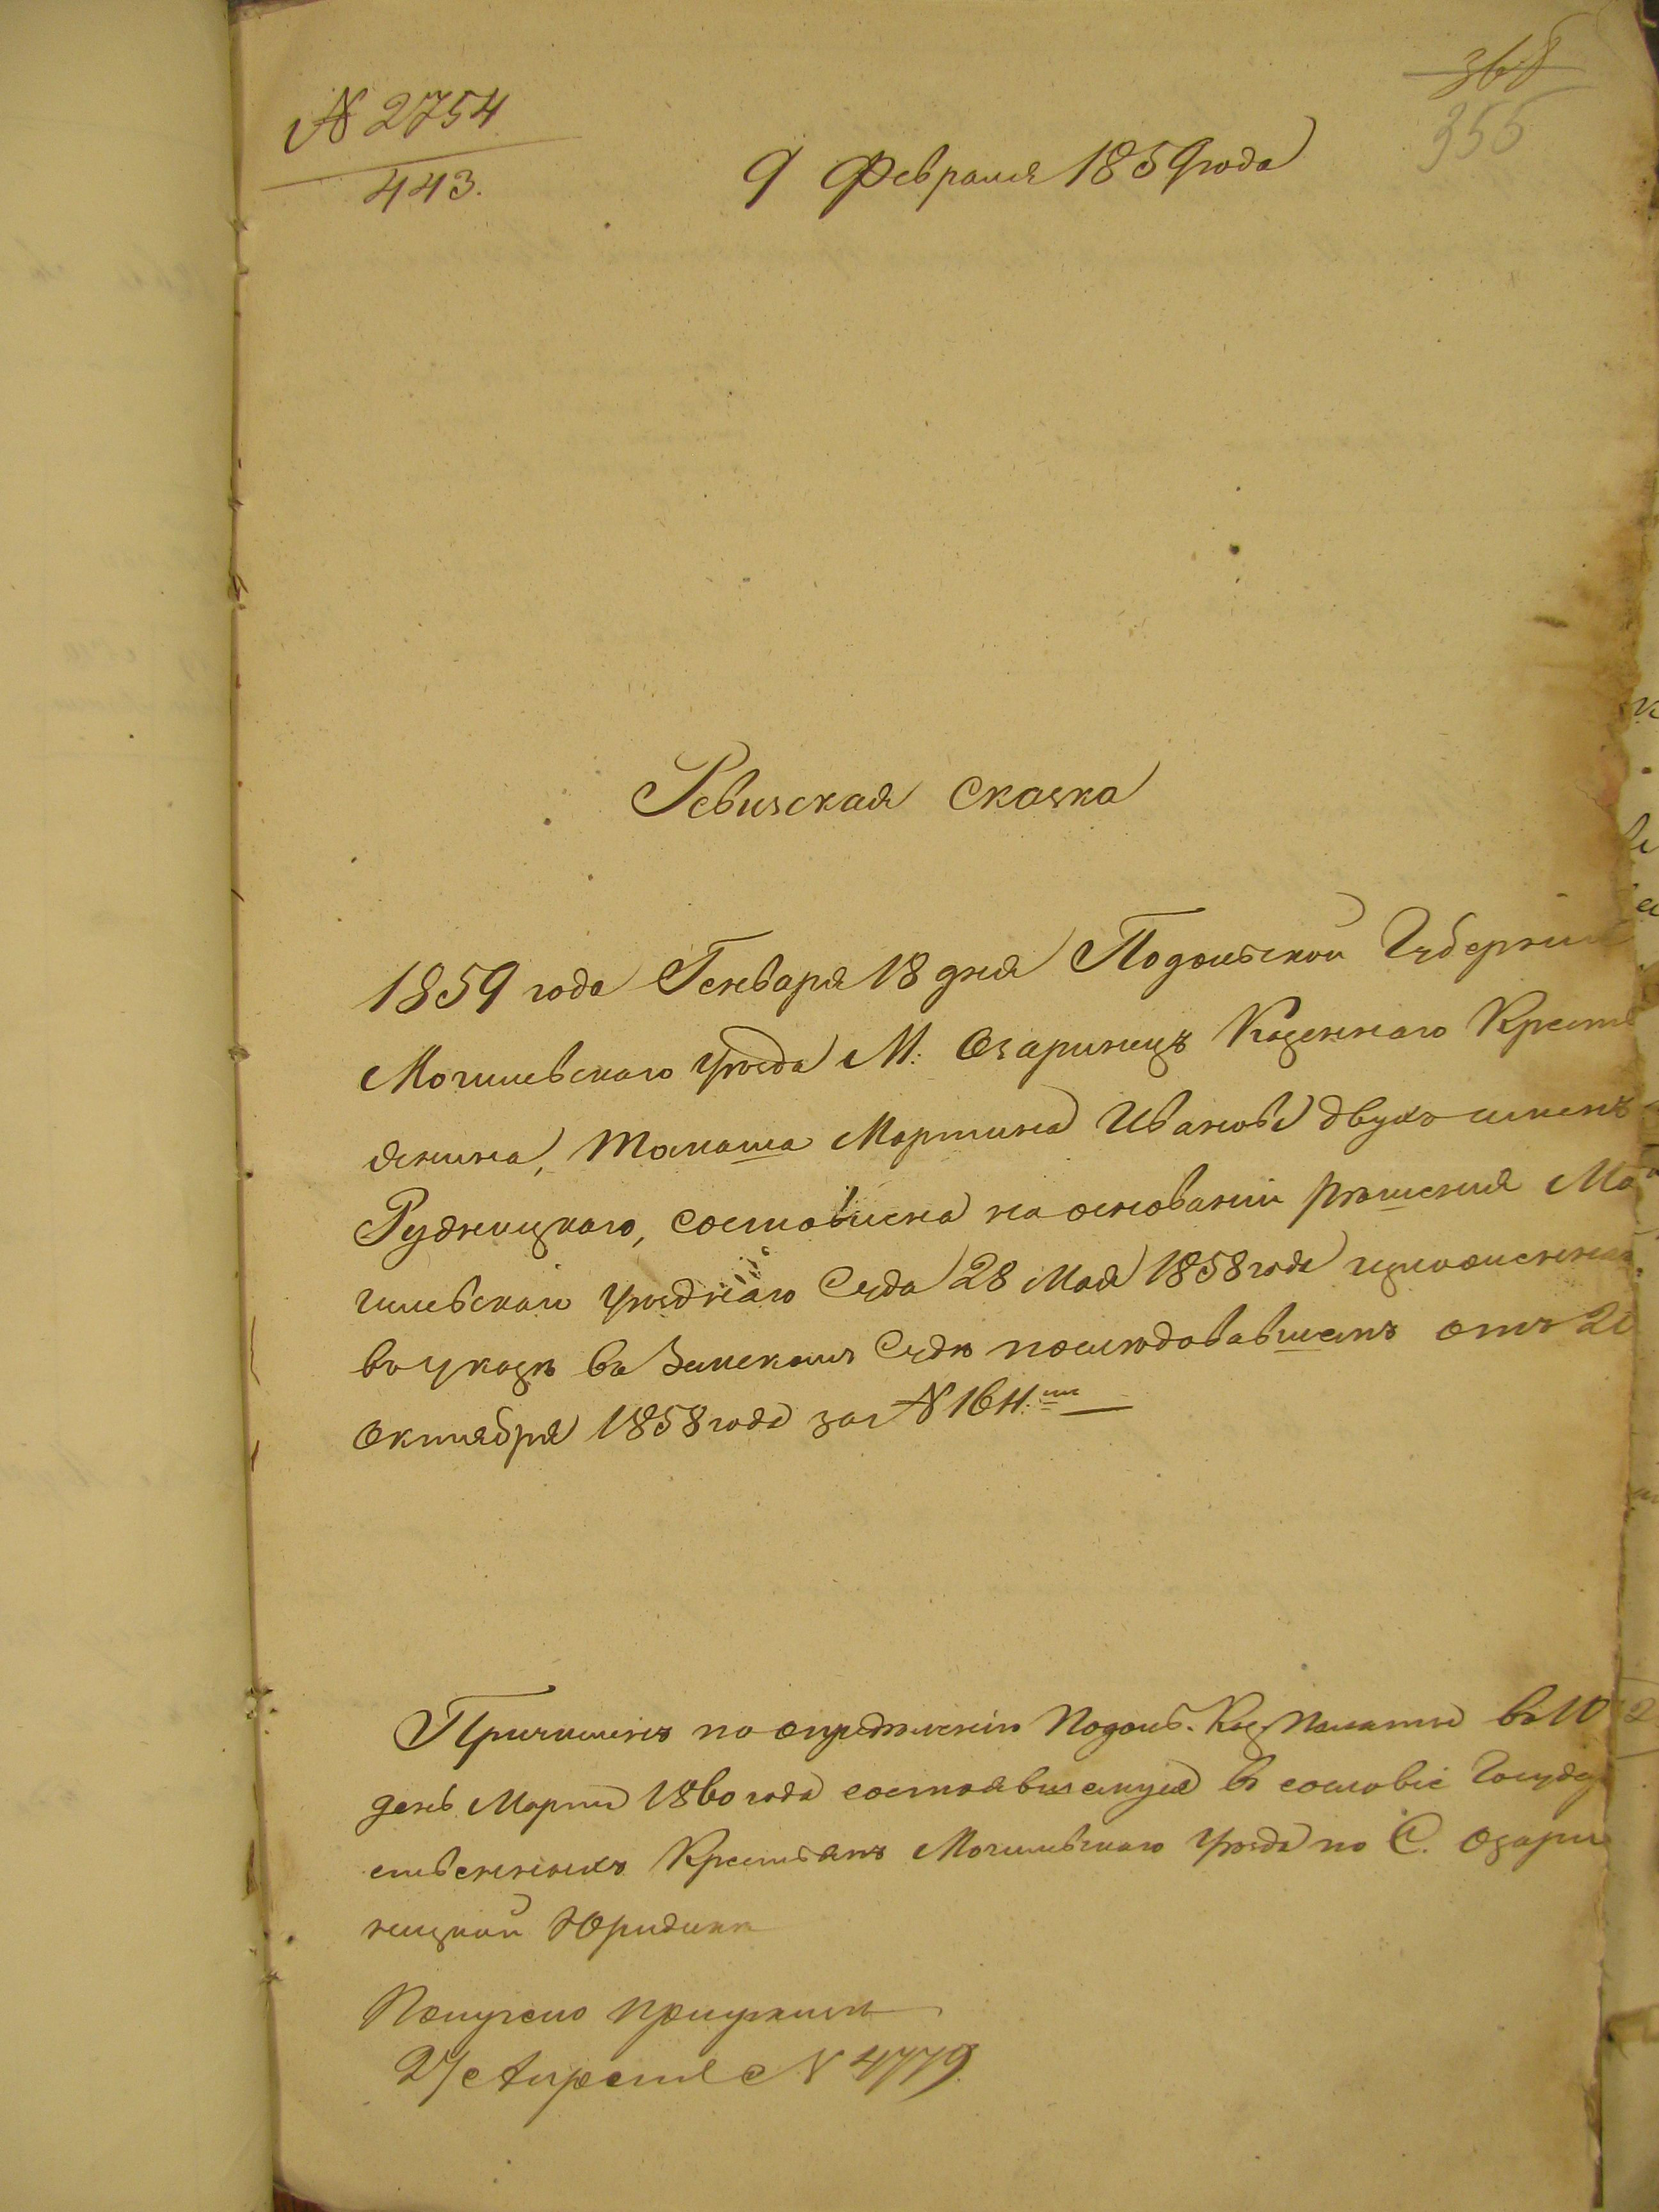 № 2754
443.
368
355
9 Февраля 1859 года
Ревизская Сказка
1859 года Генваря 18 дня Подольской Губерніи
Могилевскаго уѣзда М: Озаринецъ Казеннаго Кресть
янина, Томаша Мартина Иванова двухъ именъ
Рудницкаго, составлена на основаніи рѣшенія Мо
гилевскаго уѣзднаго Суда 28 Мая 1858 года изложеннаго
въ указѣ въ Земскомъ Судѣ послѣдовавшемъ отъ
Октября 1858 года за №
Причисленъ по опредѣленію Подоль. Каз. Палаты въ 10
день Марта 1860 года состоявшемуся въ сословіе Государ
ственныхъ Крестьянъ Могилевскаго уѣзда по С. Озари
нецкой Юридикѣ
Апреля № 4779